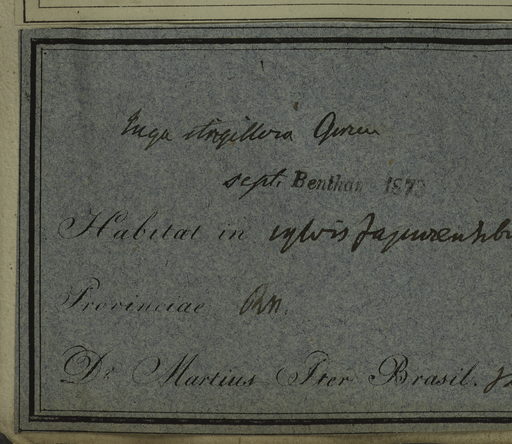 Inga strigillosa
sept. Bentham 1873
Habitat in sylvis Japurensib
Provinciae Rn.
Dr Martius Iter Brasil.